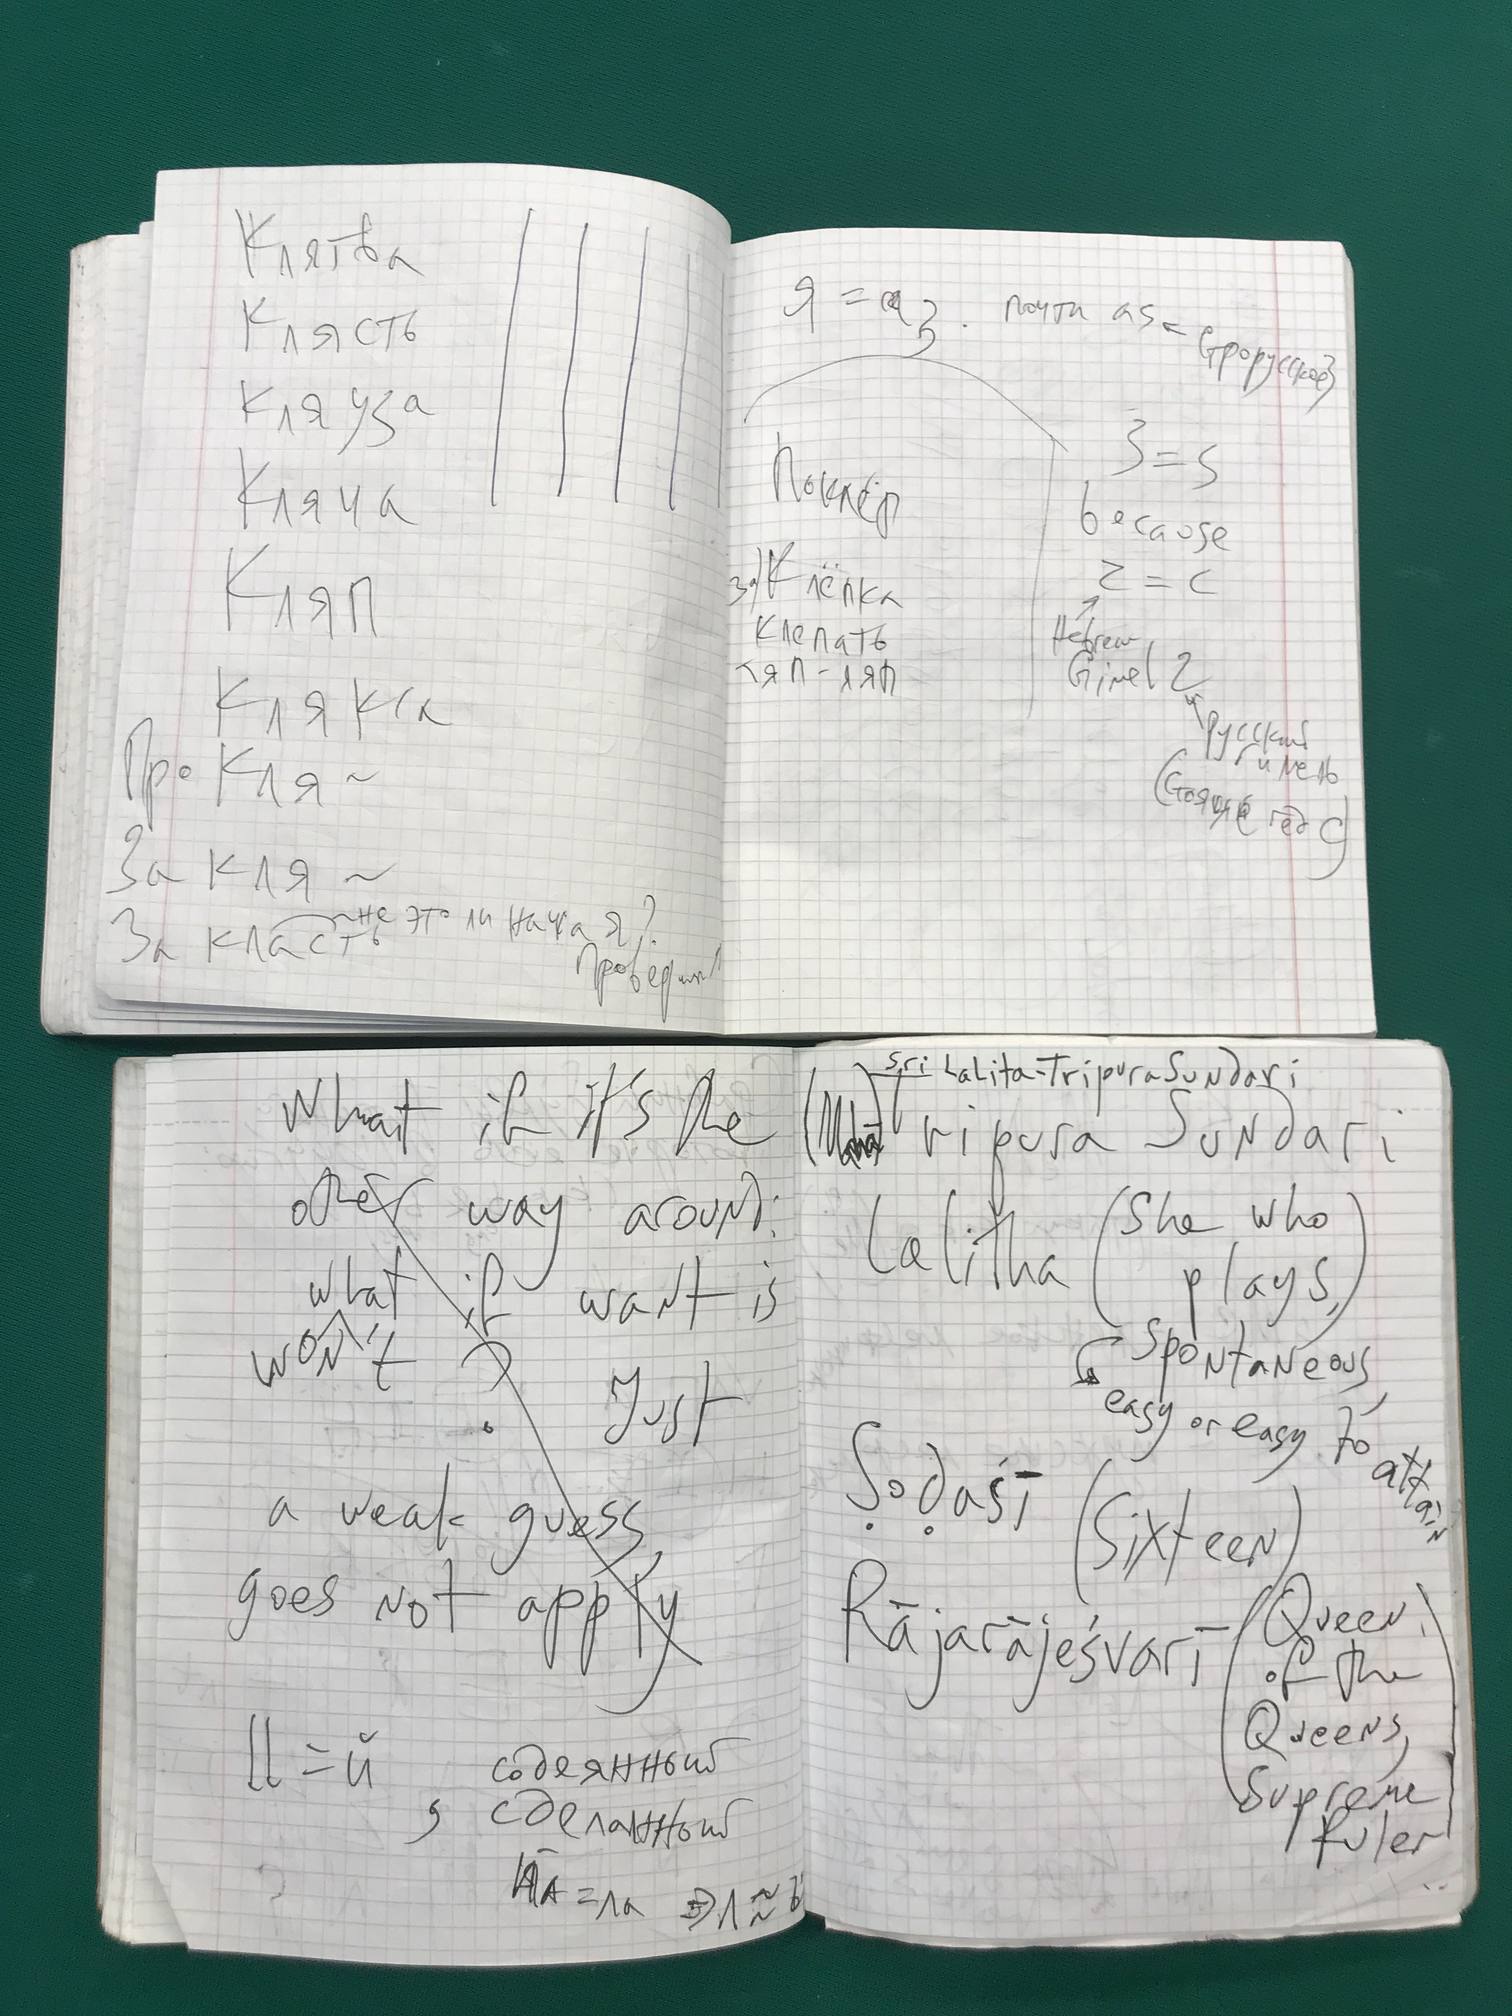 Клятва
Клясть
Кляуза
Кляча
Кляп
Клякса
ПроКля~
За кля~
~не это ли начая?
За класть
я = аз. почти as
Поклёп
за)Клёпка
клепать
тяп-ляп
3=S
because
г=c
Hebrew
Gimel 2
русский
гимель
What if it's the
other way around:
what if want is
won't ? Just
a weak guess,
goes not apply
ll=й, содеянный
сделанный
=ла
Sri Lalita-TripuraSundari
(Maha) Tripura Sundari
Lalitha (She who
plays,)
spontaneous,
easy or easy to
attain
Ṣoḍaśī (Sixteen)
Rājarājeśvarī (Queen
of the
Queens,
Supreme
Ruler)